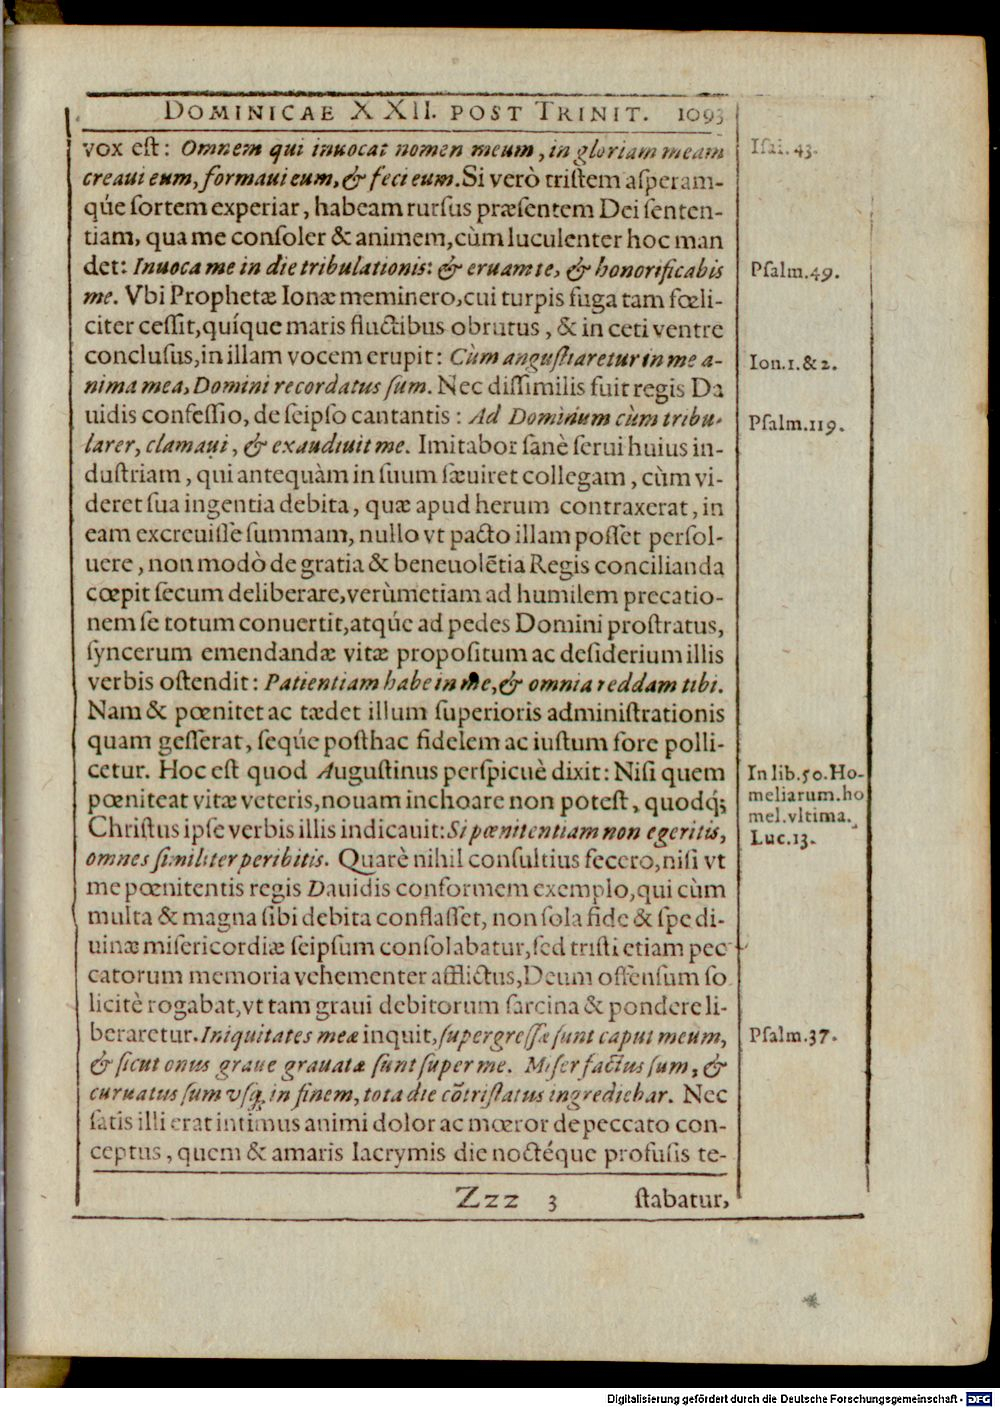 DOMINICAE XXII. POST TRINIT. 1093
vox est: Omnem qui inuocat nomen meum, in gloriam meam
creaui eum, formaui eum, & feci eum. Si verò tristem asperam-
qúe sortem experiar, habeam rursus præsentem Dei senten-
tiam, qua me consoler & animem, cùm luculenter hoc man
det: Inuoca me in die tribulationis: & eruam te, & honorificabis
me. Vbi Prophetæ Ionæ meminero, cui turpis fuga tam fœli-
citer cessit, quíque maris fluctibus obrutus, & in ceti ventre
conclusus, in illam vocem erupit: Cùm angustiaretur in me a-
nima mea, Domini recordatus sum. Nec dissimilis fuit regis Da
uidis confessio, de seipso cantantis: Ad Dominum cùm tribu-
larer, clamaui, & exaudiuit me. Imitabor sanè serui huius in-
dustriam, qui antequàm in suum sæuiret collegam, cùm vi-
deret sua ingentia debita, quæ apud herum contraxerat, in
eam excreuisse summam, nullo vt pacto illam posset persol-
uere, non modò de gratia & beneuolẽtia Regis concilianda
cœpit secum deliberare, verùmetiam ad humilem precatio-
nem se totum conuertit, atqúe ad pedes Domini prostratus,
syncerum emendandæ vitæ propositum ac desiderium illis
verbis ostendit: Patientiam habe in me, & omnia reddam tibi.
Nam & pœnitet ac tædet illum superioris administrationis
quam gesserat, seqúe posthac fidelem ac iustum fore polli-
cetur. Hoc est quod Augustinus perspicuè dixit: Nisi quem
pœniteat vitæ veteris, nouam inchoare non potest, quodq́;
Christus ipse verbis illis indicauit: Si pœnitentiam non egeritis,
omnes similiter peribitis. Quarè nihil consultius fecero, nisi vt
me pœnitentis regis Dauidis conformem exemplo, qui cùm
multa & magna sibi debita conflasset, non sola fide & spe di-
uinæ misericordiæ seipsum consolabatur, sed tristi etiam pec
catorum memoria vehementer afflictus, Deum offensum so
licitè rogabat, vt tam graui debitorum sarcina & pondere li-
beraretur. Iniquitates meæ inquit, supergressæ sunt caput meum,
& sicut onus graue grauatæ sunt super me. Miser factus sum, &
curuatus sum vsq; in finem, tota die cõtristatus ingrediebar. Nec
satis illi erat intimus animi dolor ac mœror de peccato con-
ceptus, quem & amaris lacrymis die noctéque profusis te-
Zzz 3 stabatur,
Isai. 43.
Psalm. 49.
Ion. 1. & 2.
Psalm. 119.
In lib. 50. Ho-
meliarum. ho
mel. vltima.
Luc. 13.
Psalm. 37.
Digitalisierung gefördert durch die Deutsche Forschungsgemeinschaft - DFG